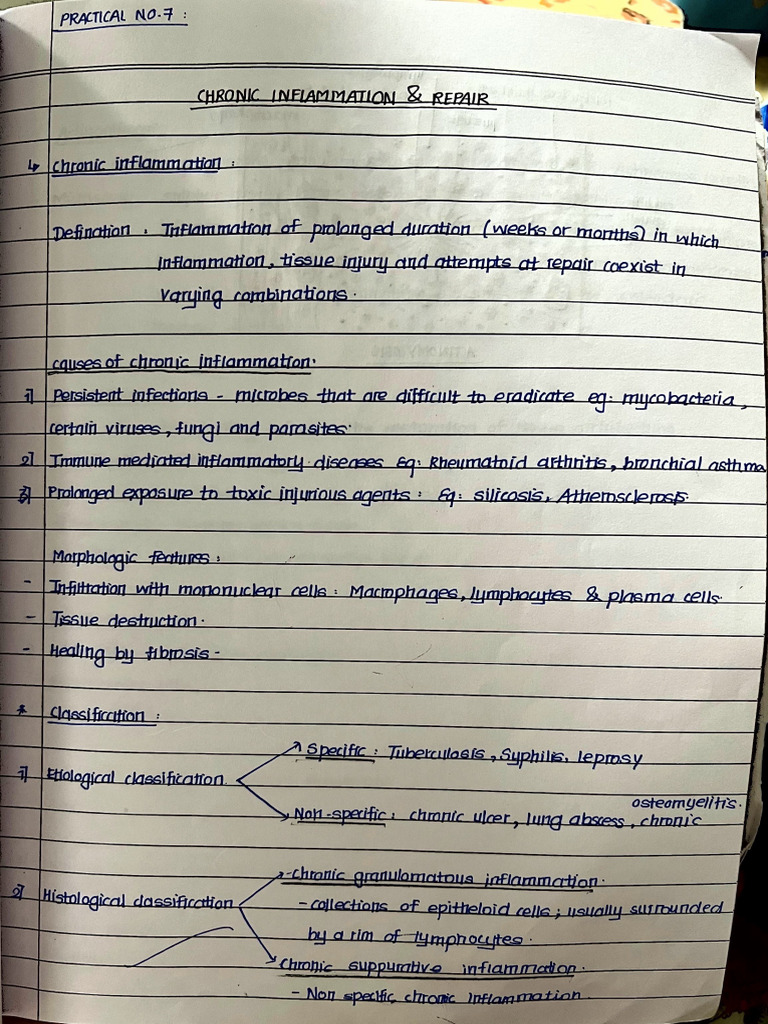 PRACTICAL NO.7 :
CHRONIC INFLAMMATION & REPAIR
↳ Chronic inflammation :
Defination : Inflammation of prolonged duration (weeks or months) in which
inflammation, tissue injury and attempts at repair coexist in
varying combinations.
causes of chronic inflammation.
1] Persistent infections - microbes that are difficult to eradicate eg: mycobacteria,
certain viruses, fungi and parasites.
2] Immune mediated inflammatory diseases Eg: Rheumatoid arthritis, bronchial asthma
3] Prolonged exposure to toxic injurious agents : Eg: silicosis, Atherosclerosis.
Morphologic features :
- Infiltration with mononuclear cells : Macrophages, lymphocytes & plasma cells.
- Tissue destruction.
- Healing by fibrosis -
* Classification :
→ Specific : Tuberculosis, Syphilis, leprosy
1] Etiological classification
osteomyelitis.
→ Non-specific : chronic ulcer, lung abscess, chronic
→ chronic granulomatous inflammation.
2] Histological classification
- collections of epitheloid cells ; usually surrounded
by a rim of lymphocytes.
→ Chronic suppurative inflammation.
- Non specific chronic inflammation